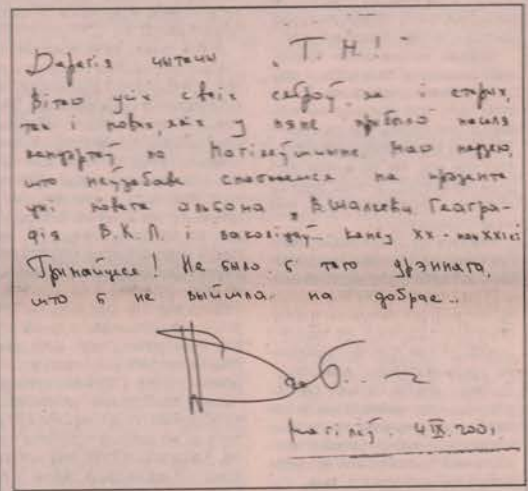 Дарагія чытачы "Т.Н!"
Вітаю усіх сваіх сяброў, як і старых,
так і новых, якіх у мяне прыбыло пасля
канцэртаў на Магілеўшчыне. Маю надзею,
што неўзабаве спаткаемся на прэзента
цыі новага альбома "В. Шалкевіч Геагра-
фія В.К.Л. і ваколіцаў канец XX - пач XXI
Трымайцеся! Не было б таго дрэннага,
што б не выйшла на добрае..
Магілеў. 4 IX. 2001